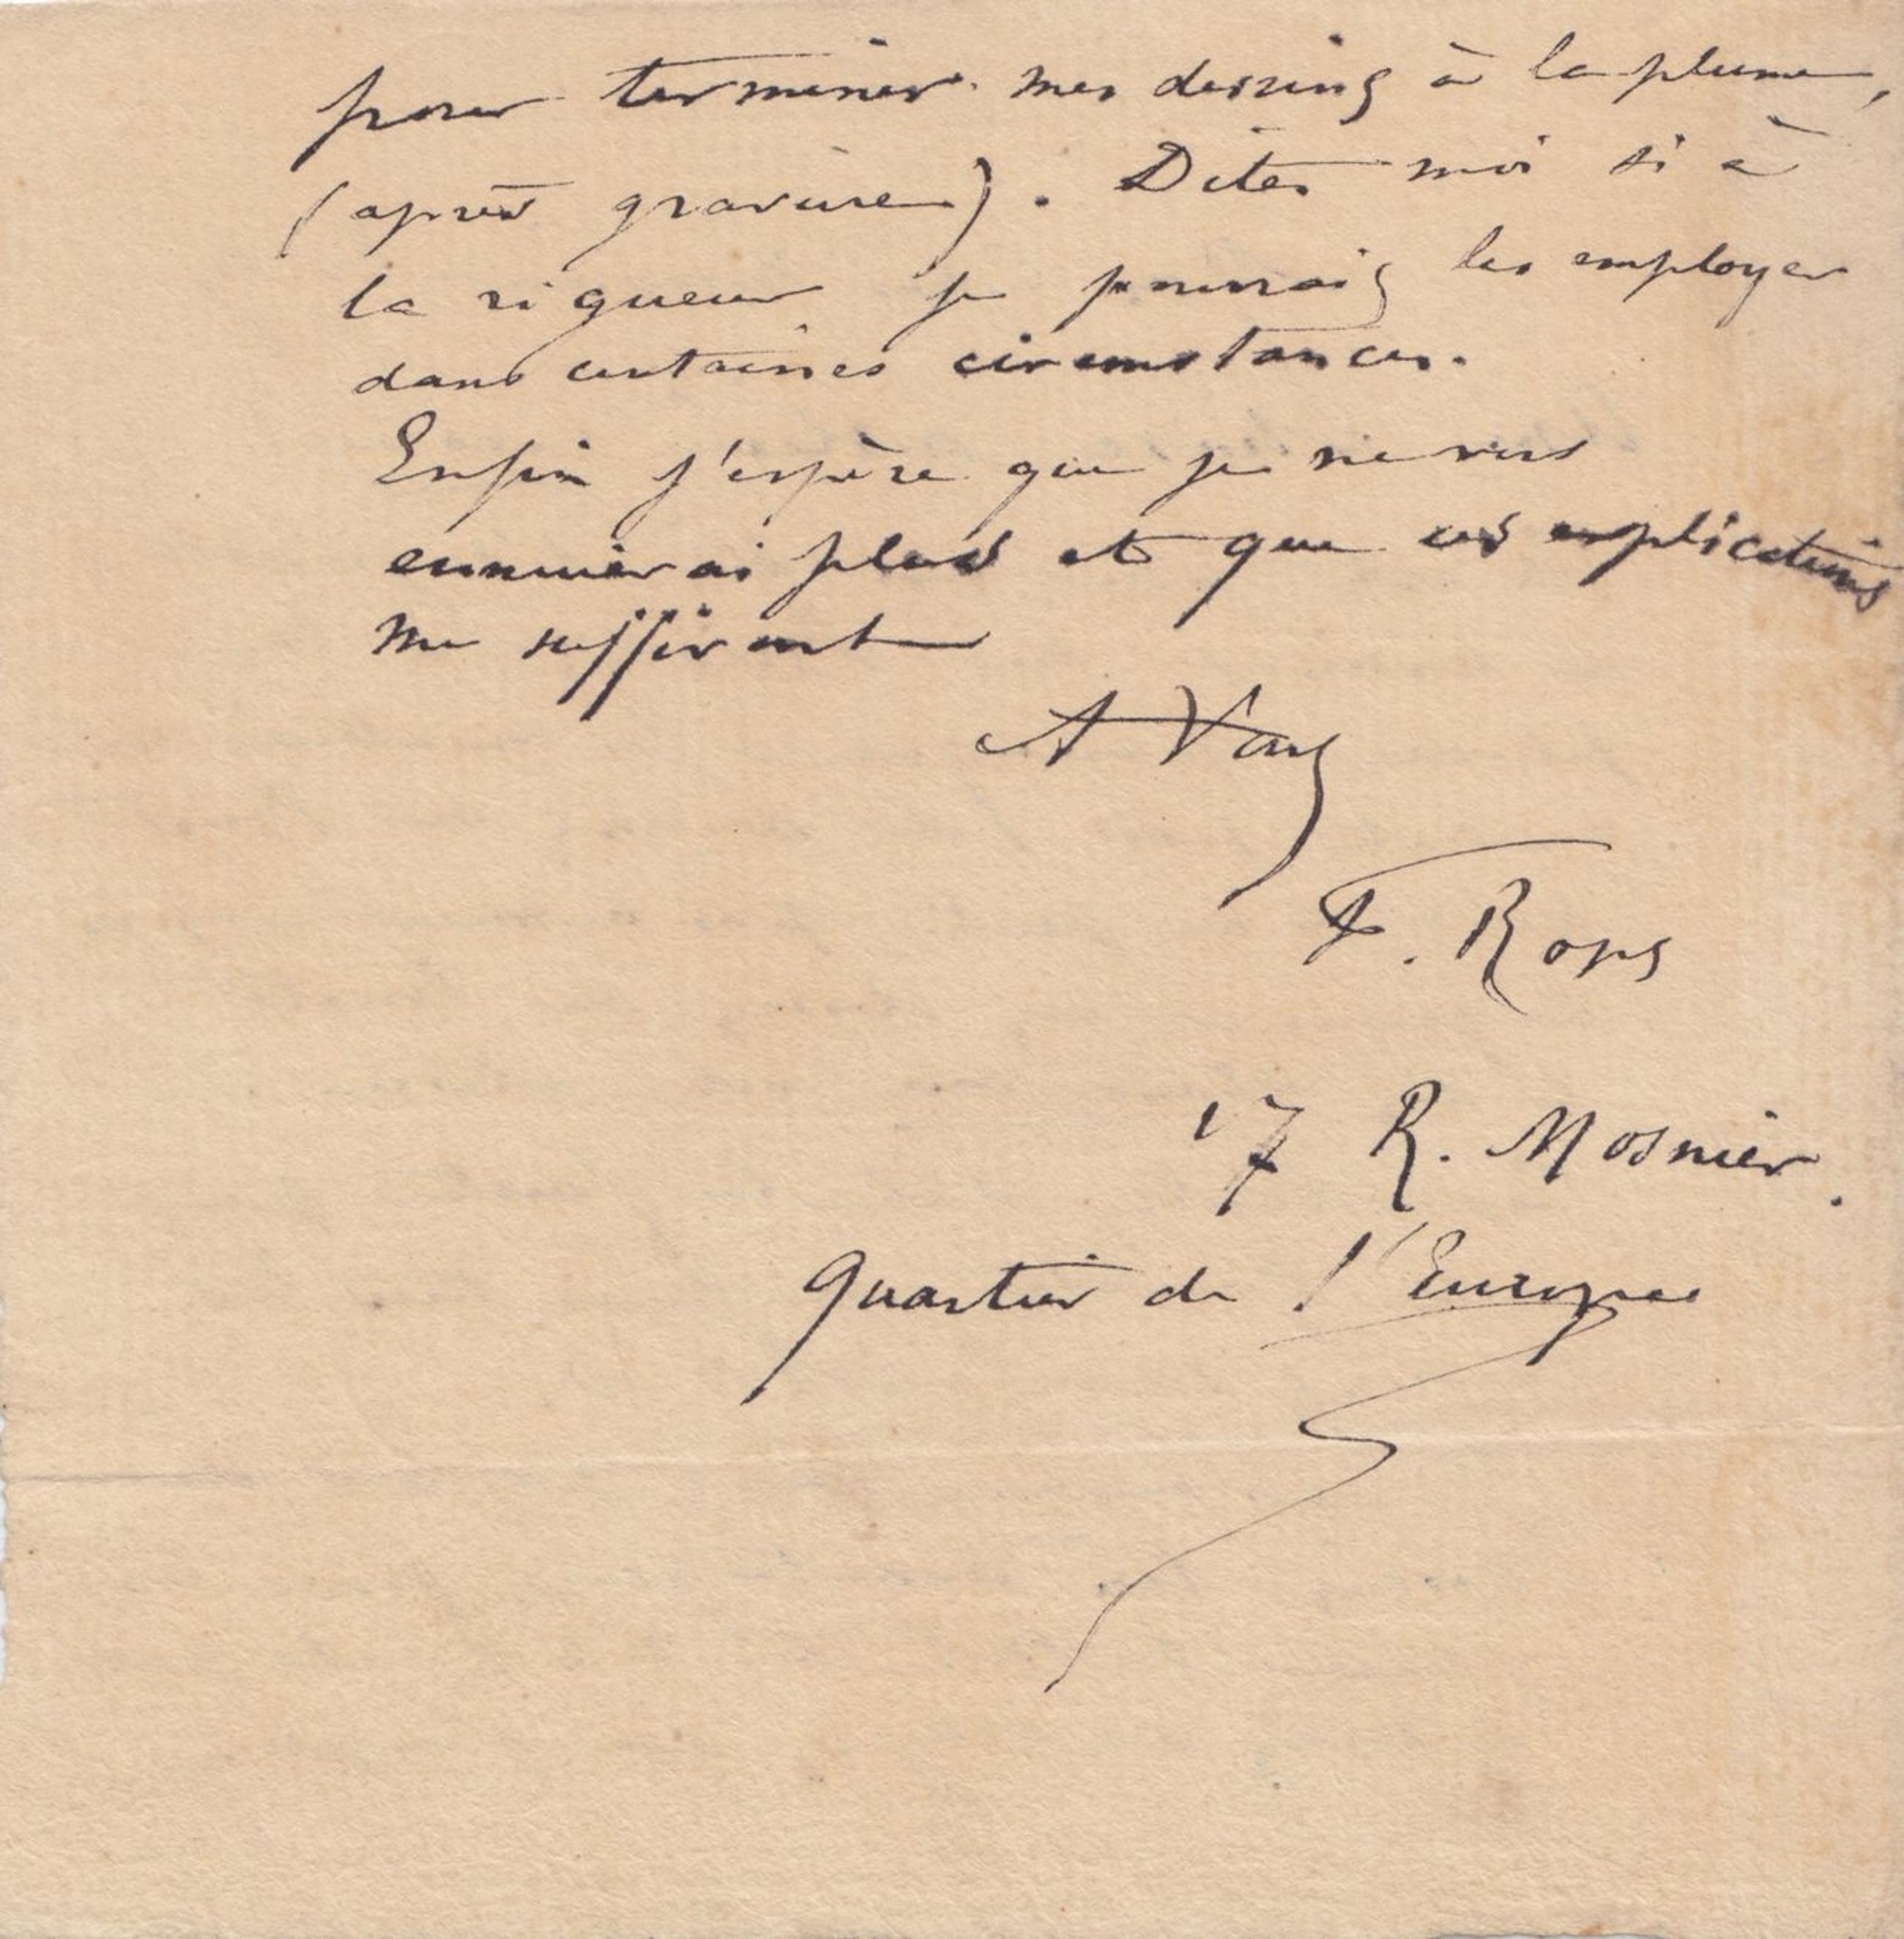 pour terminer mes dessins à la plume,
(après gravure). Dites moi si à
la rigueur je pourrais les employer
dans certaines circonstances.
Enfin j'espère que je ne vous
ennuierai plus et que ces explications
me suffiront
A Vous
F. Rops
17 R. Mosnier.
Quartier de l'Europe